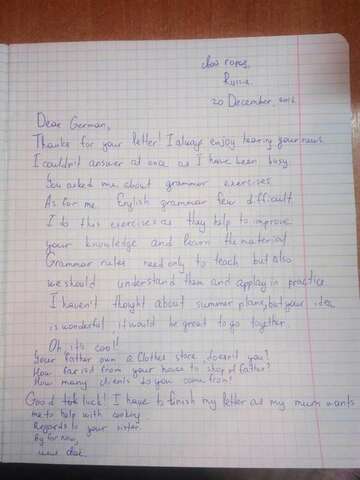 свой город,
Russia.
20 December, 2016
Dear German,
Thanks for your letter! I always enjoy hearing your news.
I couldn't answer at once as I have been busy.
You asked me about grammar exercises.
As for me English grammar few difficult.
I do this exercises as they help to improve
your knowledge and learn the material.
Grammar rules need only to teach but also
we should understand them and applay in practice.
I haven't thought about summer plans, but your idea
is wonderful it would be great to go together.
Oh, it's cool!
Your father own a clothes store, doesn't you?
How far is it from your house to shop of father?
How many clients do you come from?
Good luck! I have to finish my letter as my mum wants
me to help with cooking
Regards to your sister.
By for now,